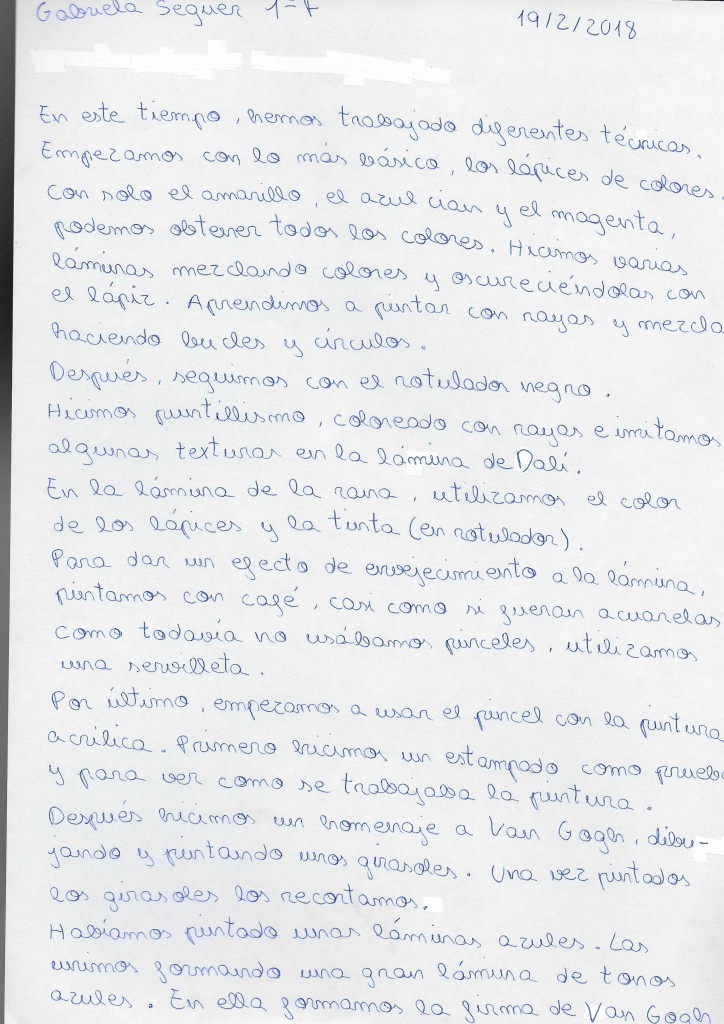 Gabriela Seguer 1º A
19/2/2018
En este tiempo, hemos trabajado diferentes técnicas.
Empezamos con lo más básico, los lápices de colores.
Con solo el amarillo, el azul cian y el magenta,
podemos obtener todos los colores. Hicimos varias
láminas mezclando colores y oscureciéndolas con
el lápiz. Aprendimos a pintar con rayas y mezcla
haciendo bucles y círculos.
Después, seguimos con el rotulador negro.
Hicimos puntillismo, coloreado con rayas e imitamos
algunas texturas en la lámina de Dalí.
En la lámina de la rana, utilizamos el color
de los lápices y la tinta (en rotulador).
Para dar un efecto de envejecimiento a la lámina,
pintamos con café, casi como si fueran acuarelas
como todavía no usábamos pinceles, utilizamos
una servilleta.
Por último, empezamos a usar el pincel con la pintura
acrílica. Primero hicimos un estampado como prueba
y para ver como se trabajaba la pintura.
Después hicimos un homenaje a Van Gogh, dibu-
jando y pintando unos girasoles. Una vez pintados
los girasoles los recortamos.
Habíamos pintado unas láminas azules. Las
unimos formando una gran lámina de tonos
azules. En ella formamos la firma de Van Gogh